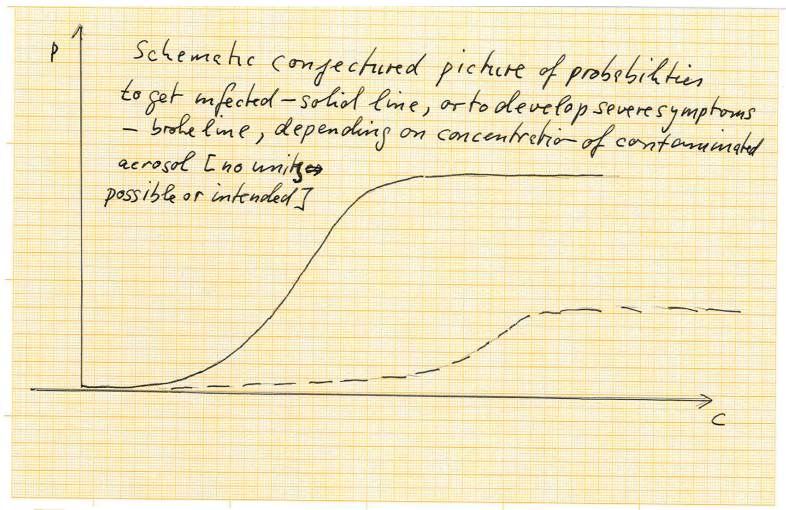 P
Schematic conjectured picture of probabilities
to get infected – solid line, or to develop severe symptoms
– broke line, depending on concentration of contaminated
aerosol [no units
possible or intended]
C